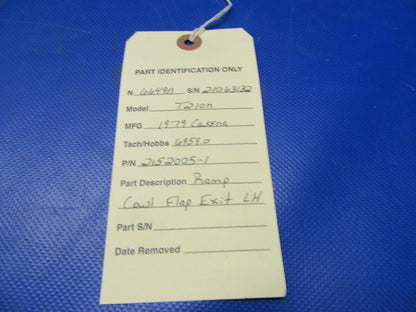 PART IDENTIFICATION ONLY
N 6649N S/N 21063132
Model T210N
MFG 1979 Cessna
Tach/Hobbs 6959.0
P/N 2152005-1
Part Description Ramp
Cowl Flap Exit LH
Part S/N
Date Removed